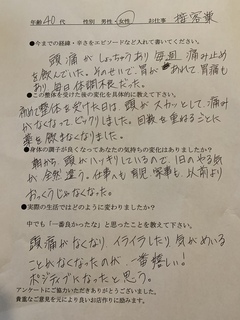 年齢 40代 性別 男性 女性 お仕事 接客業
●今までの経緯・辛さをエピソードなど入れて書いてください。
頭痛がしょっちゅうあり毎週痛み止め
を飲んでいた。そのせいで、胃があれて胃痛も
あり毎日体調不良だった。
●この整体を受けた後の変化を具体的に教えて下さい。
初めて整体を受けた日は、頭がスカッとして、痛み
がなくなってビックリしました。回数を重ねるごとに
薬を飲まなくなりました。
●身体の調子が良くなってあなたの気持ちの変化はありましたか？
朝から、頭がハッキリしているので1日のやる気
が全然違う。仕事も育児、家事も以前より
おっくうじゃなくなった。
●実際の生活ではどのように変わりましたか？
中でも「一番良かったな」と思ったことを教えて下さい。
頭痛がなくなり イライラしたり気がめいる
ことがなくなったのが、一番嬉しい！
ポジティブになったと思う。
アンケートにご協力いただきありがとうございました。
貴重なご意見を元により良いお店作りに励みます。